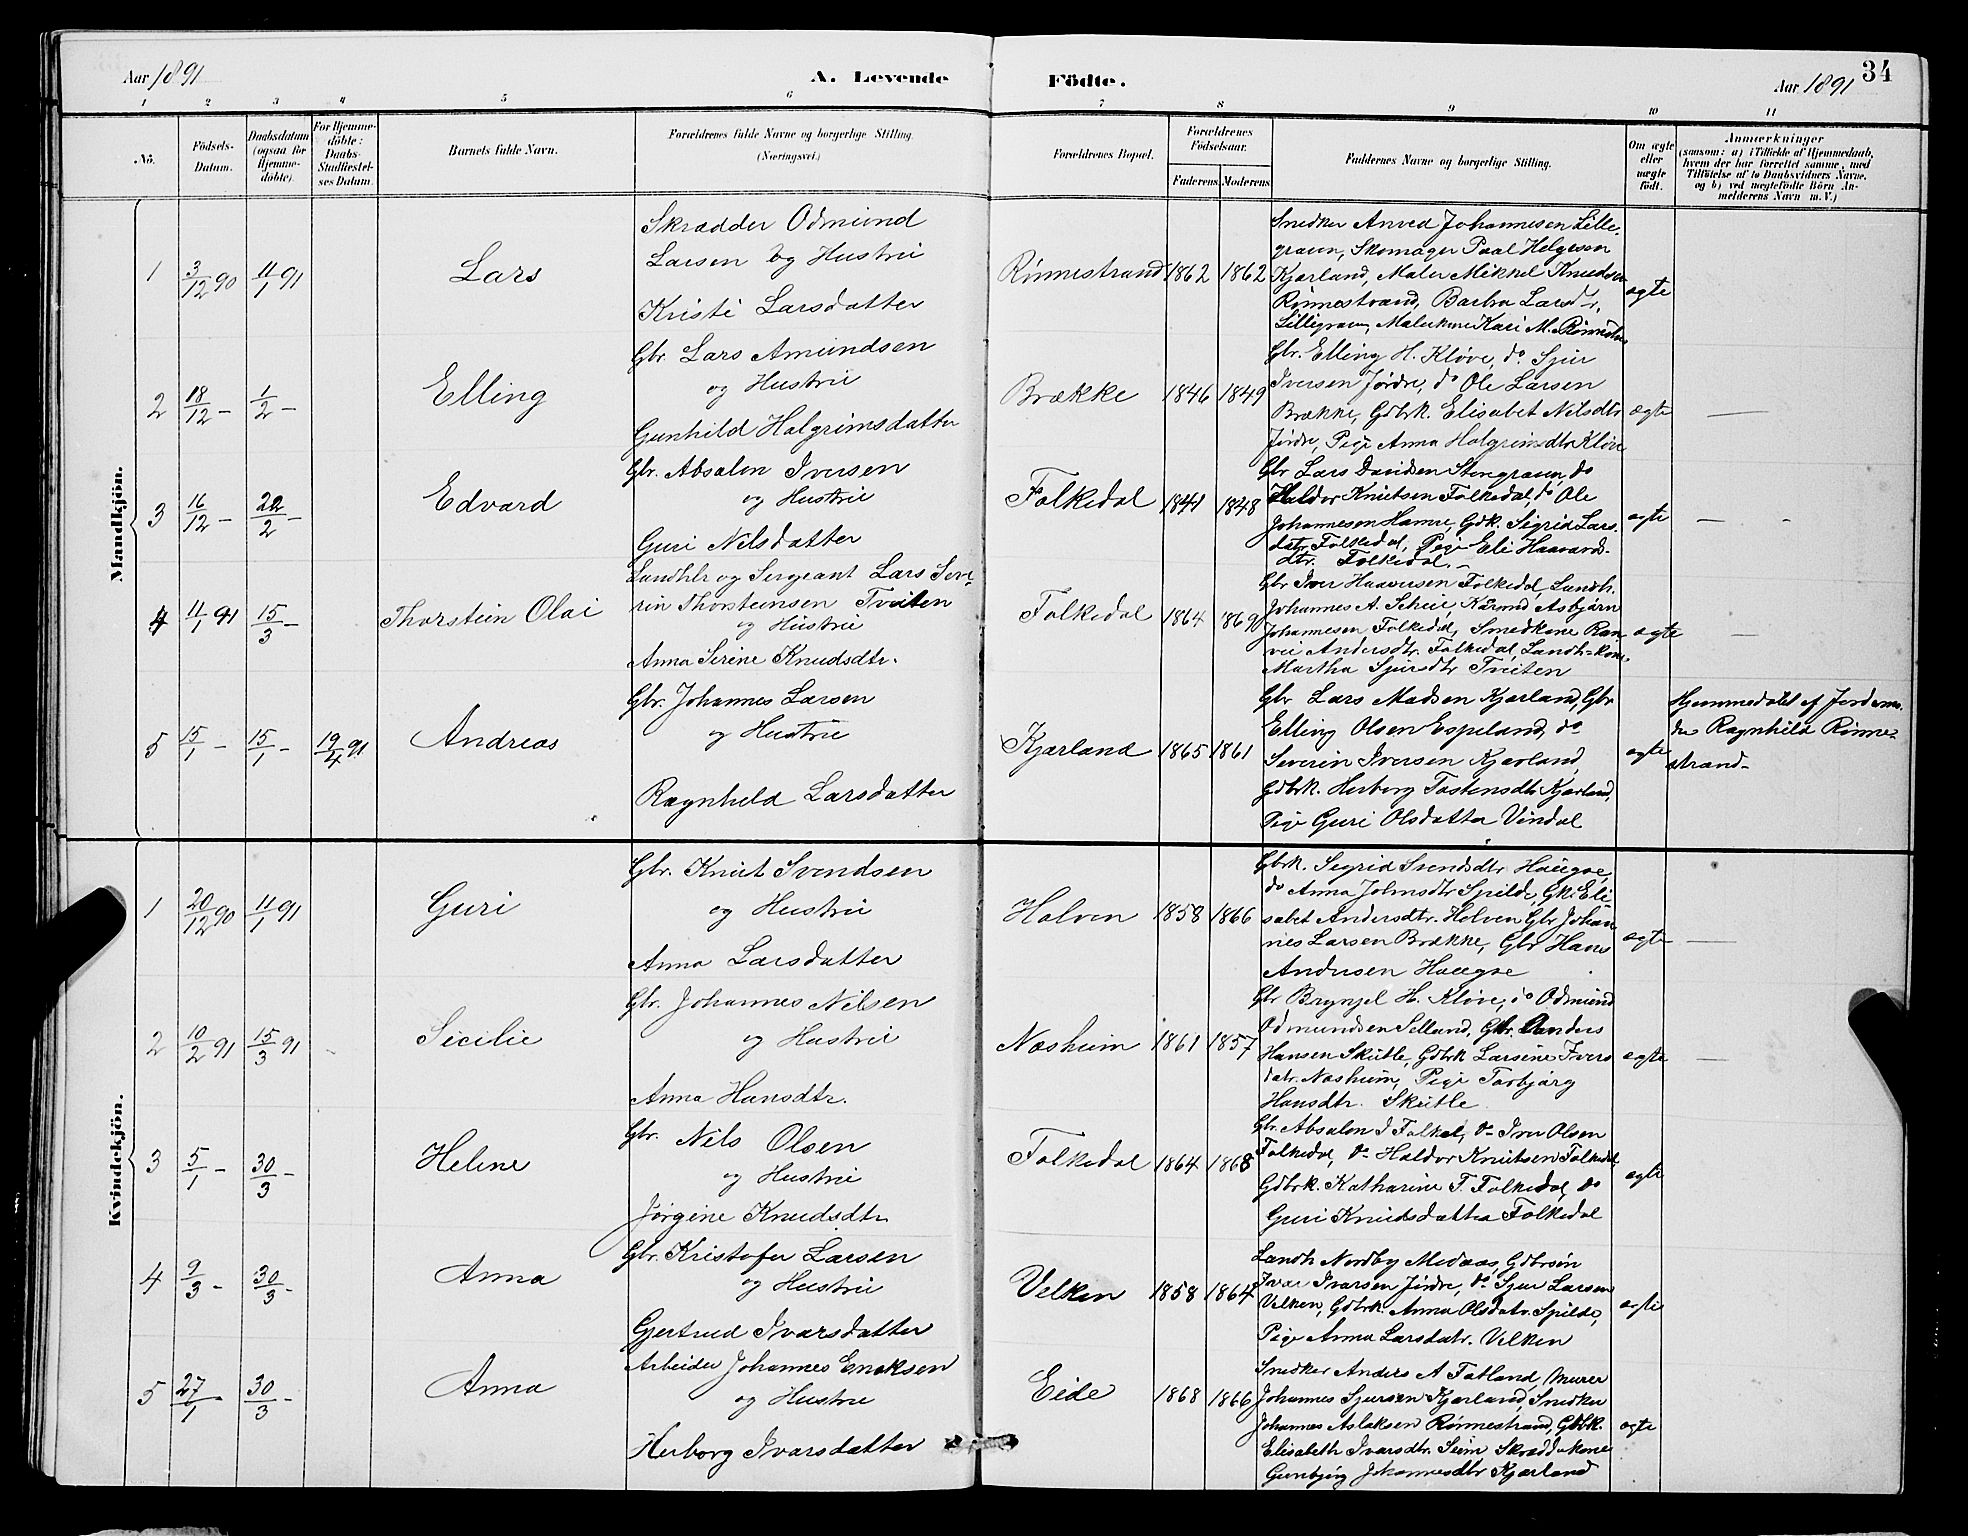 Aar 1891
A. Levende
Födte.
Aar 1891
34
1 2 3 4 5 6 7 8 9 10 11
No.
Födsels-
Datum.
Daabsdatum
(ogsaa for
Hjemme-
döbte).
For Hjemme-
döbte:
Daabs-
Stadfæstel-
ses Datum.
Barnets fulde Navn.
Forældrenes fulde Navne og borgerlige Stilling.
(Næringsvei.)
Forældrenes Bopæl.
Forældrenes
Födselsaar.
Faderens. Moderens.
Faddernes Navne og borgerlige Stilling.
Om ægte
eller
uægte
födt.
Anmærkninger
(saasom: a) i Tilfælde af Hjemmedaab,
hvem der har forrettet samme, med
Tilföielse af to Daabsvidners Navne,
og b) ved uægtefödte Börn An-
melderens Navn m.V.)
Mandkjön.
1 3/12 90 11/1 91 Lars
Skrædder Odmund
Larsen og Hustru
Kristi Larsdatter
Rønnestrand 1862 1862
Snedker Anved Johannesen Lille-
graven, Skomager Paal Helgesen
Kjærland, Maler Mikkel Knudsen
Rønnestrand, Barbra Larsdtr.
Lillegraven, Malerkone Kari M.
ægte
2 18/12 – 1/2 – Elling
Gbr. Lars Amundsen
og Hustru
Gunhild Halgrimsdatter
Brække 1846 1849
Gbr. Elling H. Kløve, do Sjur
Iversen Jørdre, do Ole Larsen
Brække, Gdbrk. Elisabet Nilsdtr
Jørdre, Pige Anna Halgrimsdtr Kløve
ægte —
3 16/12 – 22/2 – Edvard
Gbr. Absalon Iversen
og Hustru
Guri Nilsdatter
Folkedal 1841 1848
Gbr Lars Davidsen Stengraven, do
Haldor Knutsen Folkedal, do Ole
Johannesen Hamre, Gdk. Sigrid Lars-
datr Folkedal, Pige Eli Haavards-
dtr. Folkedal. –
ægte —
4 11/1 91 15/3 – Thorstein Olai
Landhlr og Sergeant Lars Seve-
rin Thorsteinsen Tveiten
og Hustru
Anna Serine Knudsdtr.
Folkedal 1864 1869
Gbr Iver Haaversen Folkedal, Landh.
Johannes A. Scheie Asbjørn
Johannesen Folkedal, Smedkone Ran-
vei Andersdtr. Folkedal, Landh-kone
Martha Sjursdtr Tveiten
ægte —
5 15/1 – 15/1 – 19/4 91 Andreas
Gbr. Johannes Larsen
og Hustru
Ragnhild Larsdatter
Kjærland 1865 1861
Gbr Lars Madsen Kjærland, Gbr
Elling Olsen Espeland, do
Severin Iversen Kjærland,
Gdbrk. Herborg Tostensdtr Kjærland,
Pige Guri Olsdatter Vindal
ægte
Hjemmedøbt af Jordemo-
der Ragnhild Rønne-
strand –
Kvindekjön.
1 20/12 90 11/1 91 Guri
Gbr. Knut Svendsen
og Hustru
Anna Larsdatter
Holven 1858 1866
Gbrk. Sigrid Svendsdtr Haugse,
do Anna Johnsdtr Spilde, Gk. Eli-
sabet Andersdtr. Holven Gbr Johan-
nes Larsen Brække, Gbr Hans
Andersen Haugse
ægte —
2 10/2 91 15/3 91 Sicilie
Gbr. Johannes Nilsen
og Hustru
Anna Hansdtr.
Næsheim 1861 1857
Gbr Brynjel H. Kløve, do Odmund
Odmundsen Selland, Gbr. Anders
Hansen Skutle, Gdbrk Larsine Ivers-
datr. Næsheim, Pige Torbjørg
Hansdtr. Skutle
ægte —
3 5/1 – 30/3 – Helene
Gbr. Nils Olsen
og Hustru
Jørgine Knudsdtr
Folkedal 1864 1868
Gbr. Absalon I Folked, do Iver Olsen
Folkedal, do Haldor Knutsen Folkedal
Gdbrk. Katharine T. Folkedal, do
Guri Knudsdatter Folkedal
ægte
4 9/3 – 30/3 – Anna
Gbr. Kristofer Larsen
og Hustru
Gjertrud Ivarsdatter
Velken 1858 1864
Landh Nordby Medaas, Gdbrsøn
Ivar Ivarsen Jørdre, do Sjur Larsen
Velken, Gdbrk. Anna Olsdatr. Spilde,
Pige Anna Larsdatr. Velken
ægte
5 27/1 – 30/3 – Anna
Arbeider Johannes Eriksen
og Hustru
Herborg Ivarsdatter
Eide 1868 1866
Snedker Anders A Fatland, Murer
Johannes Sjursen Kjærland, Snedker
Johannes Aslaksen Rønnestrand, Gdbk.
Elisabeth Ivarsdtr. Seim Skrædderkone
Gunbjørg Johannesdtr Kjærland
ægte